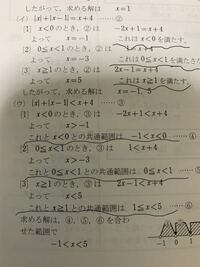 したがって，求める解は x<4
(イ) |x|+|x−1|=x+4 ……②
[1] x<0 のとき，②は −2x+1=x+4
よって x=−1 これは x<0 を満たす。
[2] 0≦x<1 のとき，②は 1=x+4
よって x=−3 これは 0≦x<1 を満たさ
[3] x≧1 のとき，②は 2x−1=x+4
よって x=5 これは x≧1 を満たす。
したがって，求める解は x=−1, 5
(ウ) |x|+|x−1|<x+4 ……③
[1] x<0 のとき，③は −2x+1<x+4
よって x>−1
これと x<0 との共通範囲は −1<x<0 ……④
[2] 0≦x<1 のとき，③は 1<x+4
よって x>−3
これと 0≦x<1 との共通範囲は 0≦x<1 ……⑤
[3] x≧1 のとき，③は 2x−1<x+4
よって x<5
これと x≧1 との共通範囲は 1≦x<5 ……⑥
求める解は，④，⑤，⑥を合わ
せた範囲で
−1<x<5
④ ⑤ ⑥
−1 0 1